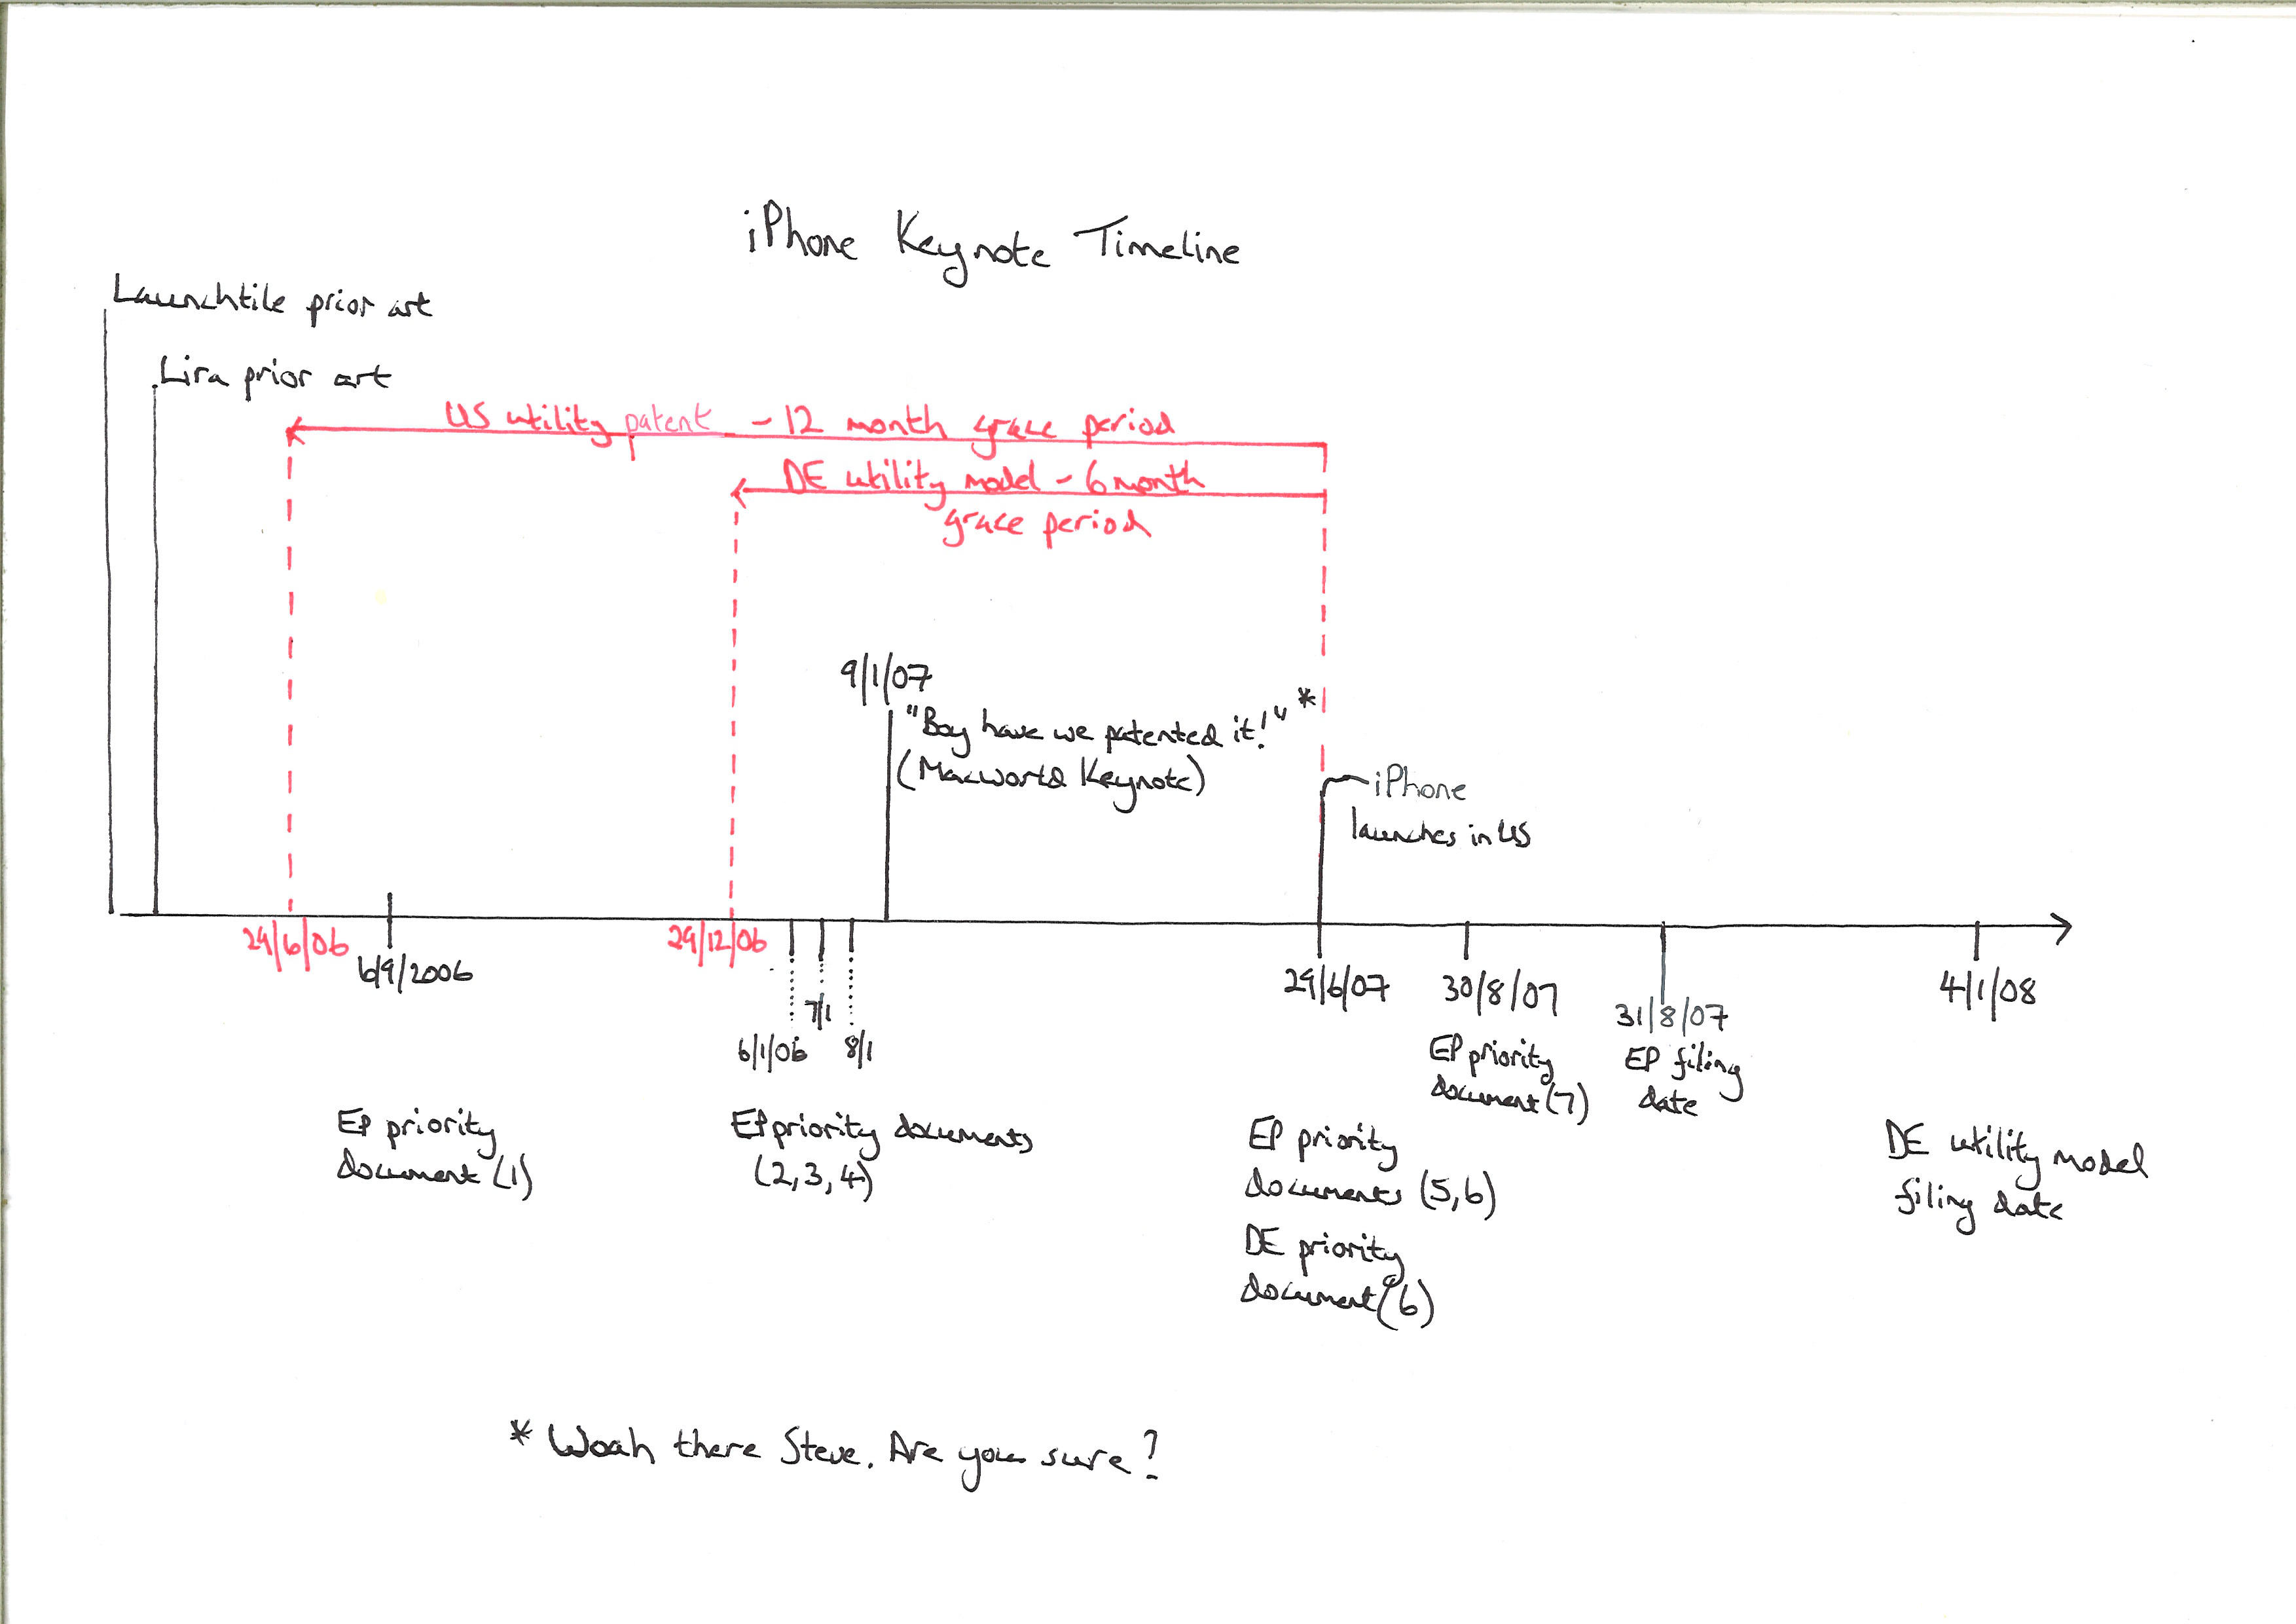 iPhone Keynote Timeline
Launchtile prior art
Lira prior art
US utility patent - 12 month grace period
DE utility model - 6 month
grace period
9/1/07
"Boy have we patented it!" *
(Macworld Keynote)
iPhone
launches in US
29/6/06
6/9/2006
29/12/06
6/1/06
7/1
8/1
29/6/07
30/8/07
31/8/07
4/1/08
EP priority
document (1)
EP priority documents
(2,3,4)
EP priority
documents (5,6)
DE priority
document (6)
EP priority
document (7)
EP filing
date
DE utility model
filing date
* Woah there Steve. Are you sure?